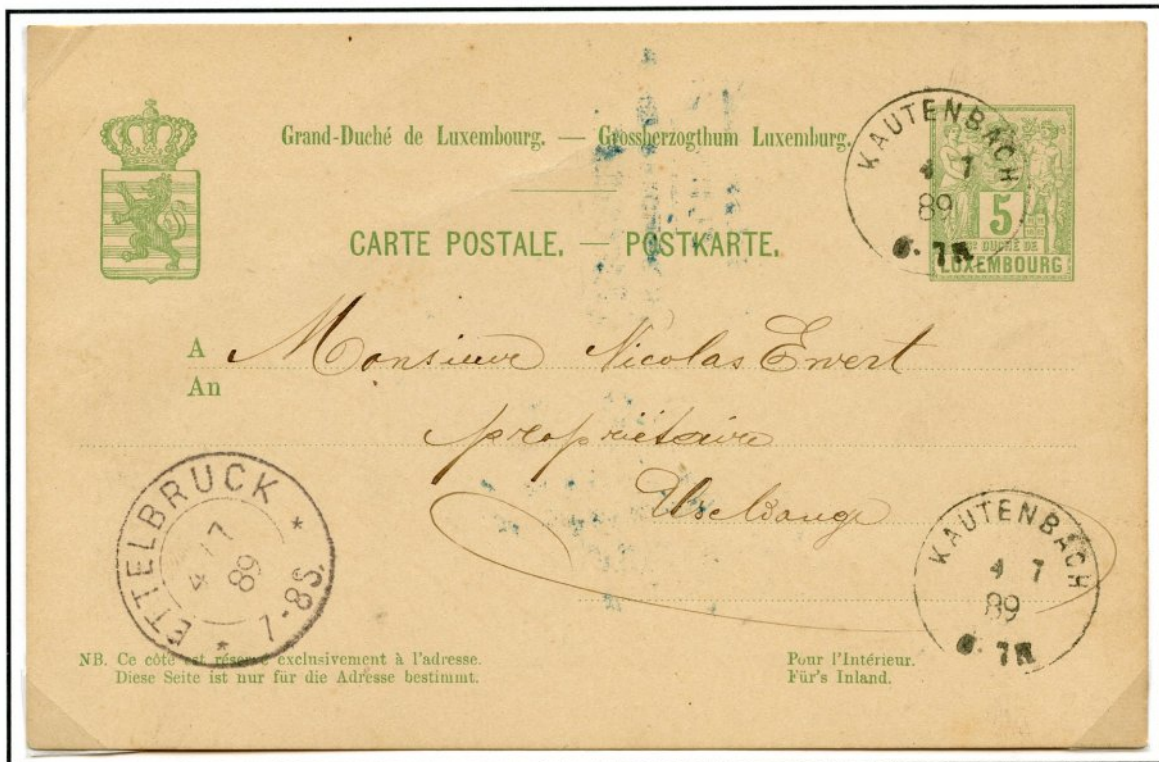 Grand-Duché de Luxembourg. — Grossherzogthum Luxemburg.
CARTE POSTALE. — POSTKARTE.
KAUTENBACH
4 7
89
7
5
Gd DUCHÉ DE
LUXEMBOURG
A Monsieur Nicolas Ewert
An
propriétaire
Useldange
ETTELBRUCK * *
4 - 7
89
7-8S.
KAUTENBACH
4 7
89
7
NB. Ce côté est réservé exclusivement à l'adresse.
Diese Seite ist nur für die Adresse bestimmt.
Pour l'Intérieur.
Für's Inland.